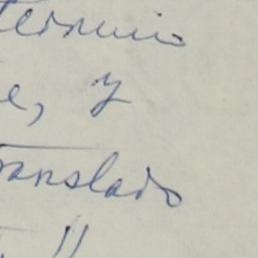 termino
e, y
ranslado